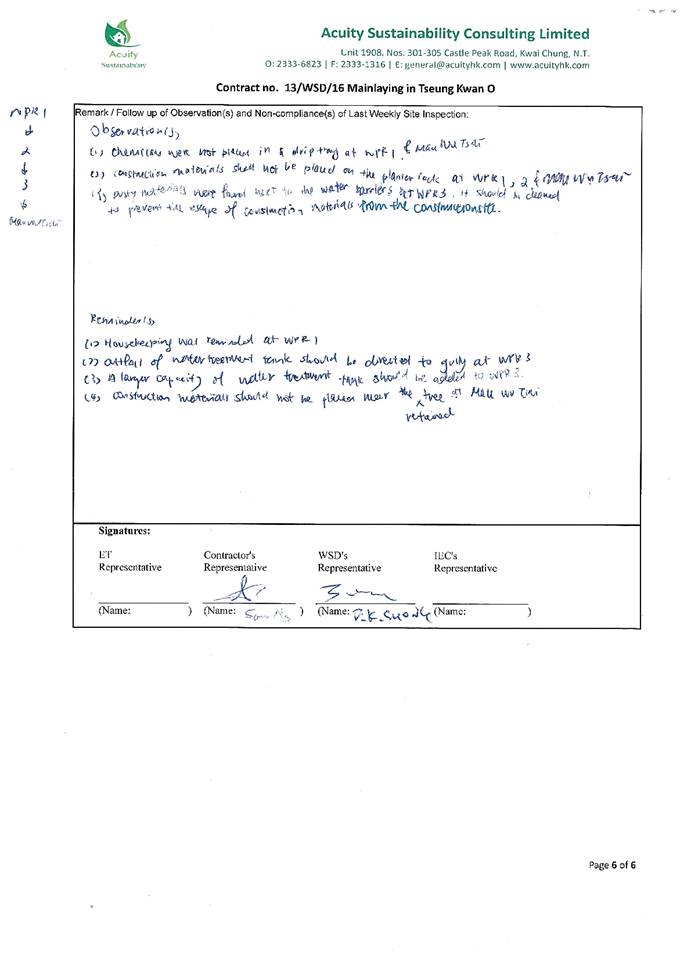 Acuity Sustainability Consulting Limited
Unit 1908, Nos. 301-305 Castle Peak Road, Kwai Chung, N.T.
O: 2333-6823 | F: 2333-1316 | E: general@acuityhk.com | www.acuityhk.com
Acuity
Sustainability
Contract no. 13/WSD/16 Mainlaying in Tseung Kwan O
WPR 1
2
3
Mau Wu Tsai
Remark / Follow up of Observation(s) and Non-compliance(s) of Last Weekly Site Inspection:
Observation(s)
(1) Chemicals were not placed in a drip tray at WPR1 & Mau Wu Tsai
(2) construction materials shall not be placed on the planter rock at WPR1, 2 & Mau Wu Tsai
(3) dusty materials were found next to the water barriers at WPR3. It should be cleaned
to prevent the escape of construction materials from the construction site.
Reminder(s)
(1) Housekeeping was reminded at WPR1
(2) outfall of water treatment tank should be directed to gully at WPR3
(3) A larger capacity of water treatment tank should be added to WPR3.
(4) construction materials should not be placed near the tree at Mau Wu Tsai
retained
Signatures:
ET Representative
Contractor's Representative
WSD's Representative
IEC's Representative
(Name: )
(Name: )
(Name: )
(Name: )
Page 6 of 6